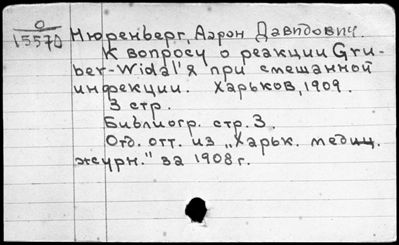 О
15570
Нюренберг, Аарон Давидович.
К вопросу о реакции Gru-
ber-Widal'я при смешанной
инфекции. Харьков, 1909.
3 стр.
Библиогр. стр. 3.
Отд. отт. из „Харьк. медиц.
журн." за 1908 г.